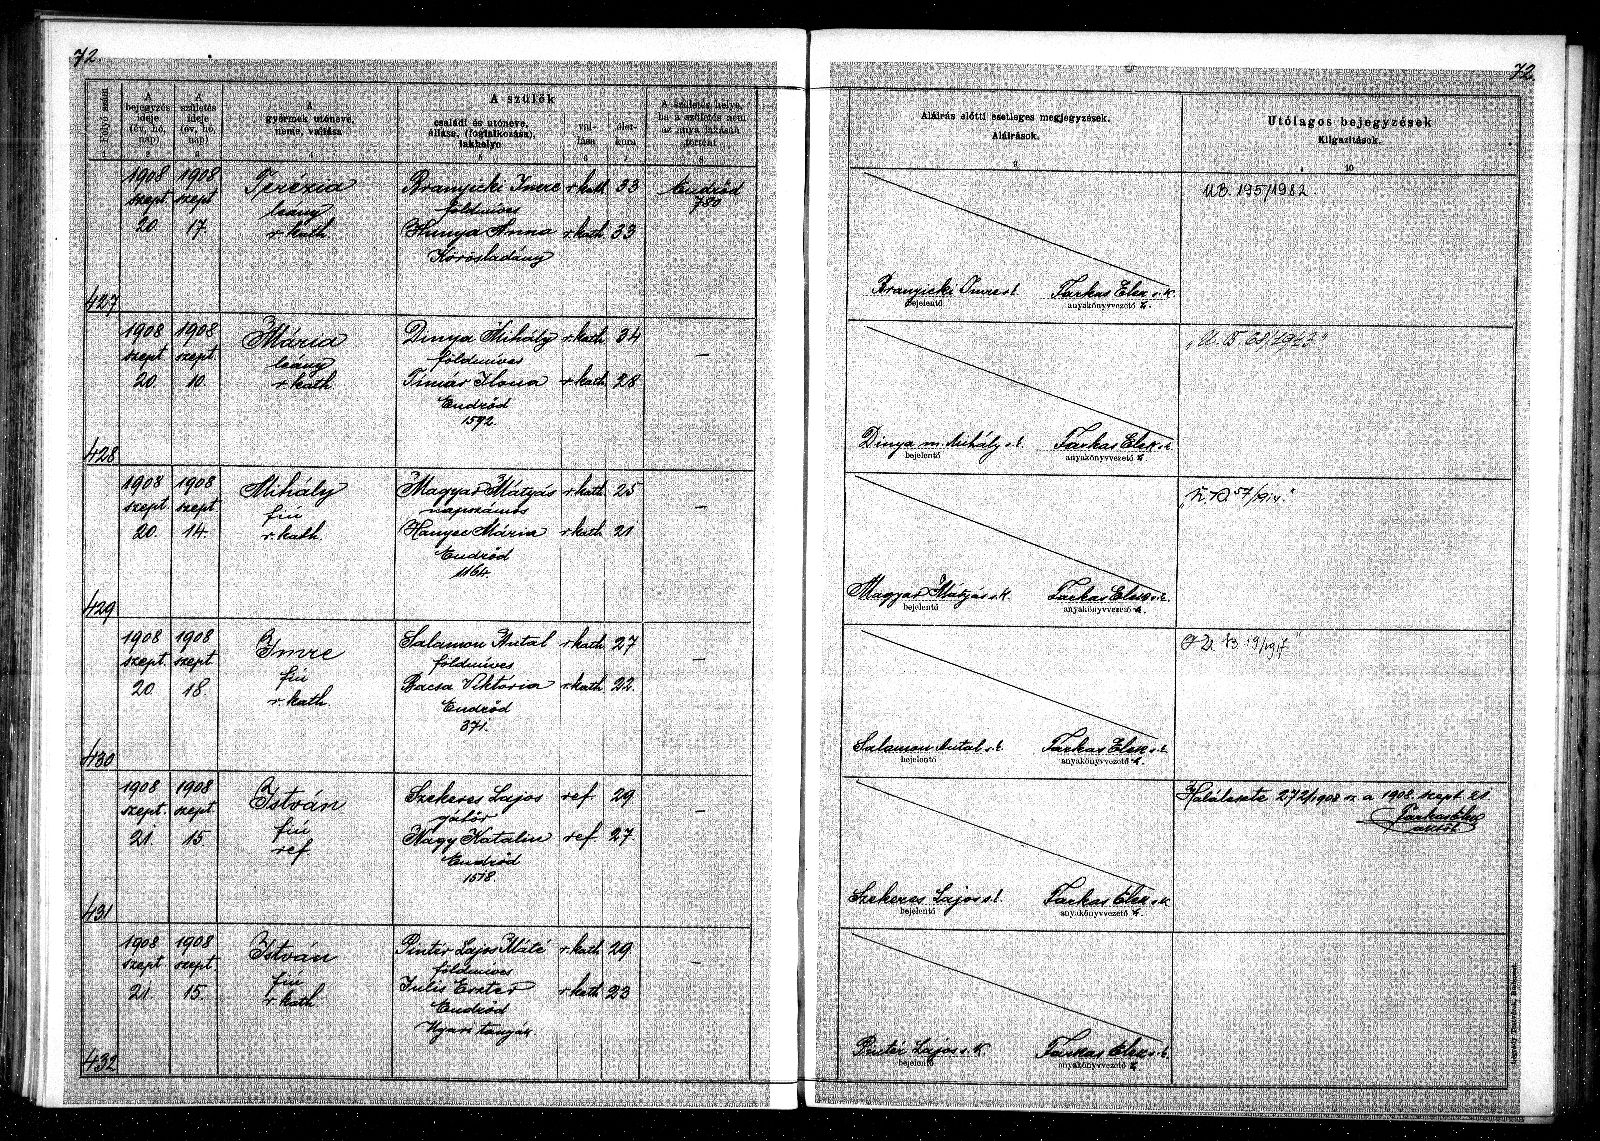 72.
Folyó szám
A bejegyzés ideje (év, hó, nap)
A születés ideje (év, hó, nap)
A gyermek utóneve, neme, vallása
A szülők
családi és utóneve, állása, (foglalkozása), lakhelye
vallása
életkora
A születés helye, ha a születés nem az anya lakásán történt
1 2 3 4 5 6 7 8
1908 1908 Terézia Branyicki Imre r. kath. 33 Endrőd
szept. szept. leány földmíves 780
20. 17. r. kath. Hunya Anna r. kath. 33
Körösladány
427
1908 1908 Mária Dinya Mihály r. kath. 34 —
szept. szept. leány földmíves
20. 10. r. kath. Tímár Ilona r. kath. 28
Endrőd
1592.
428
1908 1908 Mihály Magyar Mátyás r. kath. 25 —
szept. szept. fiú napszámos
20. 14. r. kath. Hanyec Mária r. kath. 21
Endrőd
1164.
429
1908 1908 Imre Salamon Antal r. kath. 27 —
szept. szept. fiú földmíves
20. 18. r. kath. Bacsa Viktória r. kath. 22.
Endrőd
371.
430
1908 1908 István Szekeres Lajos ref. 29 —
szept. szept. fiú gátőr
21. 15 ref. Nagy Katalin ref. 27.
Endrőd
1518.
431
1908 1908 István Pintér Lajos Máté r. kath. 29. —
szept. szept. fiú földmíves
21. 15. r. kath. Iulis Eszter r. kath. 23
Endrőd
432
72.
Aláírás előtti esetleges megjegyzések.
Aláírások.
9
Utólagos bejegyzések
Kiigazítások.
10
U.B. 195/1982
Branyicki Imre s.k. Farkas Elek s.k.
bejelentő anyakönyvvezető h.
Dinya m. Mihály s.k. Farkas Elek s.k.
bejelentő anyakönyvvezető h.
Magyar Mátyás s.k. Farkas Elek s.k.
bejelentő anyakönyvvezető h.
Salamon Antal s.k. Farkas Elek s.k.
bejelentő anyakönyvvezető h.
Halálesete 272/1908 sz. a. 1908. szept. 21.
Szekeres Lajos s.k. Farkas Elek s.k.
bejelentő anyakönyvvezető h.
Pintér Lajos s.k. Farkas Elek s.k.
bejelentő anyakönyvvezető h.